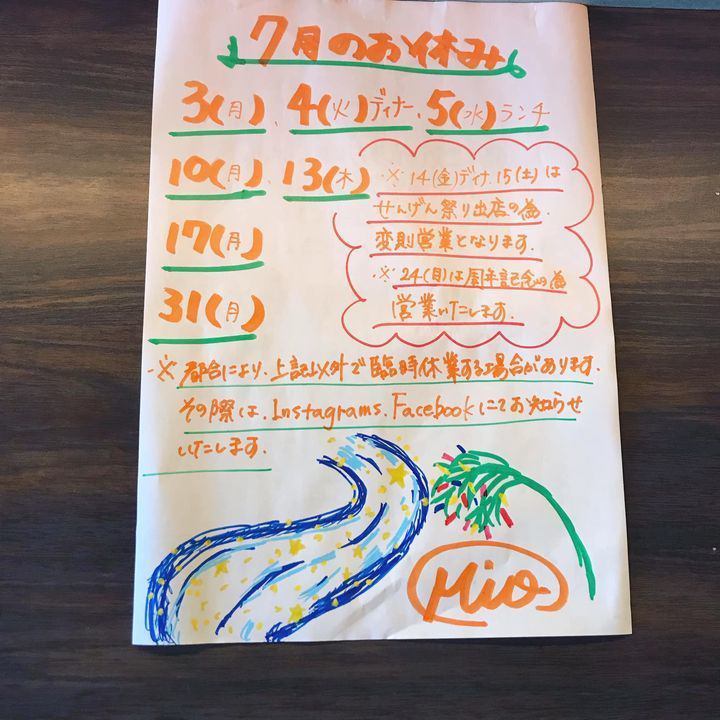 7月のお休み
3(月)、4(火)ディナー、5(水)ランチ
10(月)、13(木)
17(月)
31(月)
※14(金)ディナ、15(土)は
せんげん祭り出店の為、
変則営業となります。
※24(月)は周年記念の為
営業いたします。
※都合により、上記以外で臨時休業する場合があります。
その際は、Instagrams、Facebookにてお知らせ
いたします。
Mio